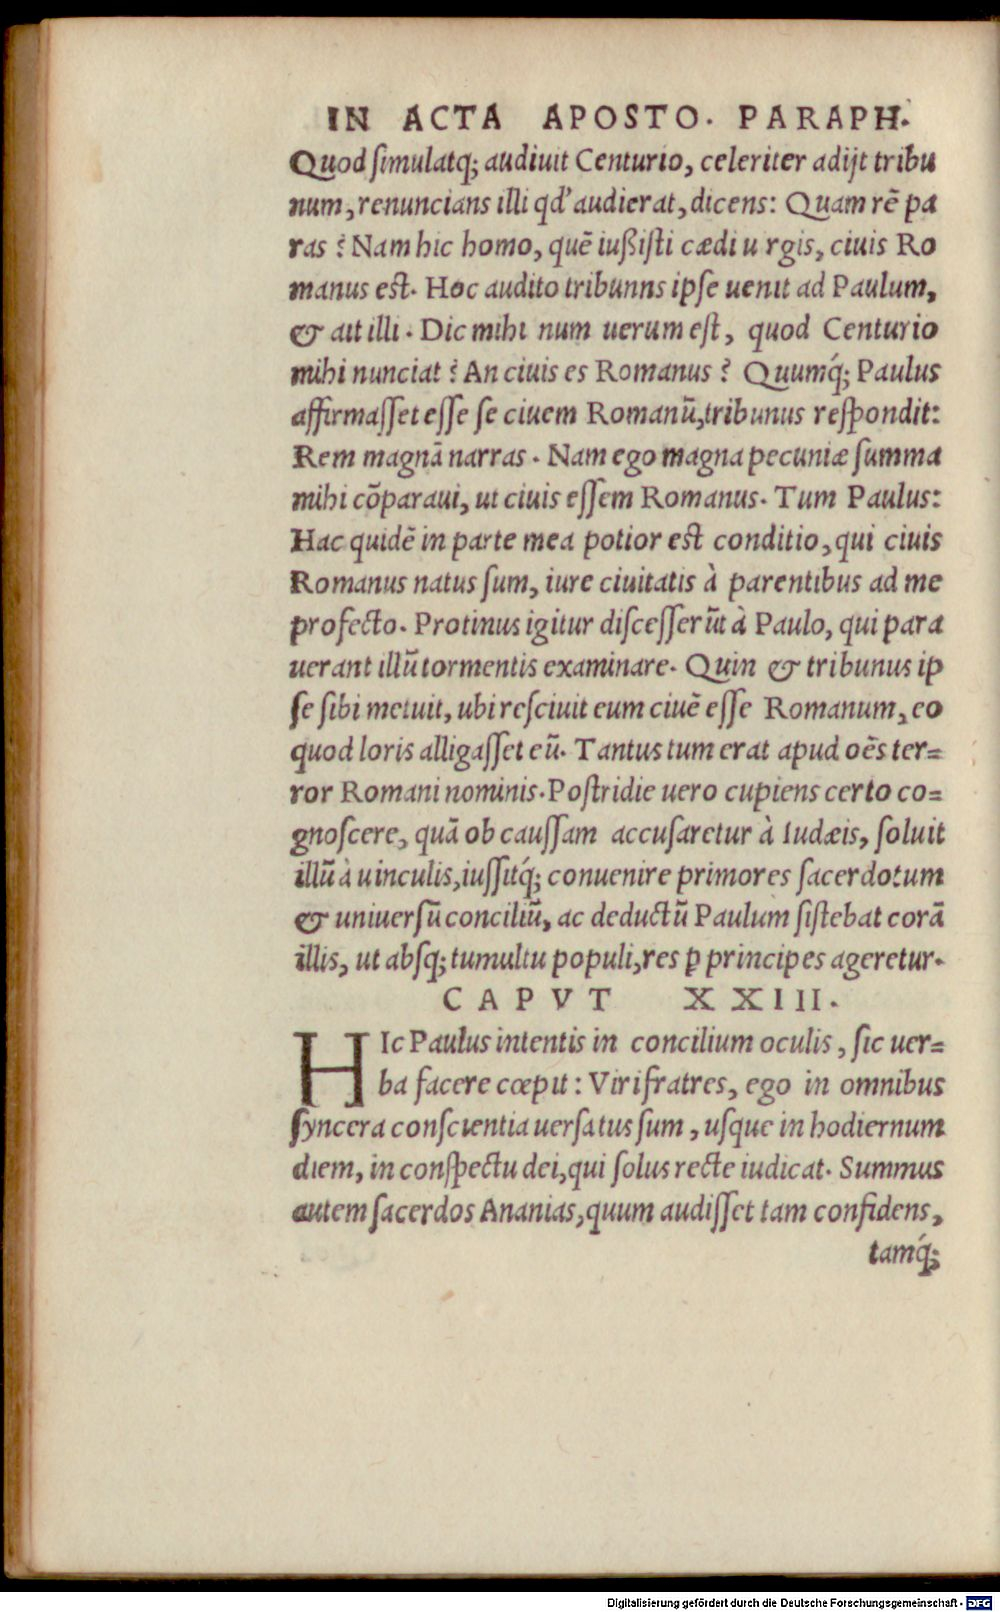 IN ACTA APOSTO. PARAPH.
Quod ſimulatq; audiuit Centurio, celeriter adijt tribu
num, renuncians illi qd' audierat, dicens: Quam rē pa
ras? Nam hic homo, quē iußiſti cædi u rgis, ciuis Ro
manus eſt. Hoc audito tribunns ipſe uenit ad Paulum,
& ait illi. Dic mihi num uerum eſt, quod Centurio
mihi nunciat? An ciuis es Romanus? Quumq́; Paulus
affirmaſſet eſſe ſe ciuem Romanū, tribunus reſpondit:
Rem magnā narras. Nam ego magna pecuniæ ſumma
mihi cōparaui, ut ciuis eſſem Romanus. Tum Paulus:
Hac quidē in parte mea potior eſt conditio, qui ciuis
Romanus natus ſum, iure ciuitatis à parentibus ad me
profecto. Protinus igitur diſceſſerūt à Paulo, qui para
uerant illū tormentis examinare. Quin & tribunus ip
ſe ſibi metuit, ubi reſciuit eum ciuē eſſe Romanum, eo
quod loris alligaſſet eū. Tantus tum erat apud oēs ter=
ror Romani nominis. Poſtridie uero cupiens certo co=
gnoſcere, quā ob cauſſam accuſaretur à Iudæis, ſoluit
illū à uinculis, iuſſitq́; conuenire primores ſacerdotum
& uniuerſū conciliū, ac deductū Paulum ſiſtebat corā
illis, ut abſq; tumultu populi, res ꝑ principes ageretur.
CAPVT XXIII.
HIc Paulus intentis in concilium oculis, ſic uer=
ba facere cœpit: Viri fratres, ego in omnibus
ſyncera conſcientia uerſatus ſum, uſque in hodiernum
diem, in conſpectu dei, qui ſolus recte iudicat. Summus
autem ſacerdos Ananias, quum audiſſet tam confidens,
tamq́;
Digitalisierung gefördert durch die Deutsche Forschungsgemeinschaft - DFG